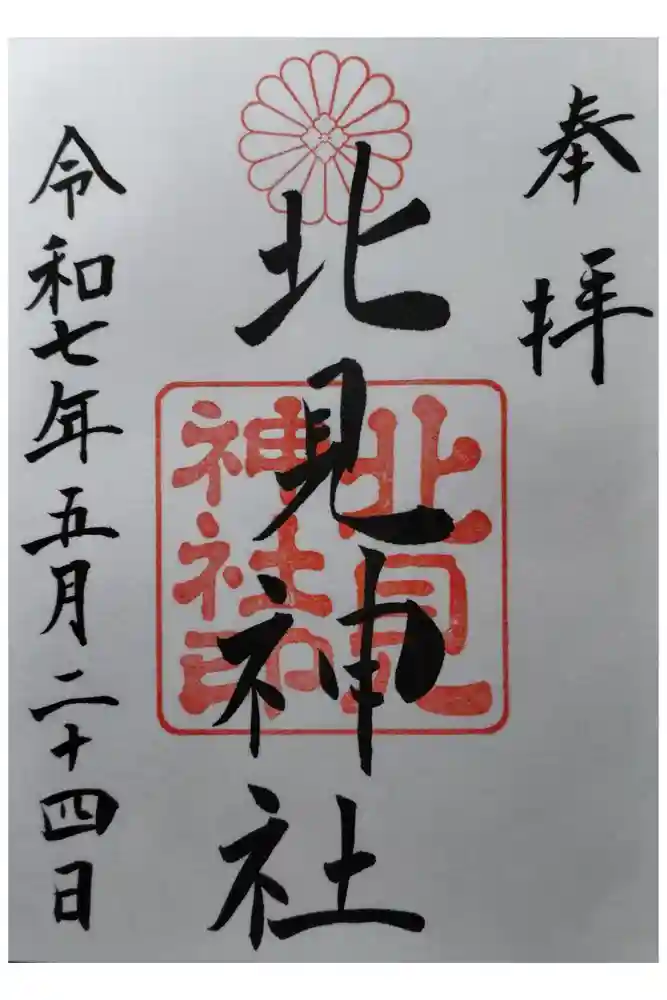 奉拝
北見神社
北見
神社印
令和七年五月二十四日